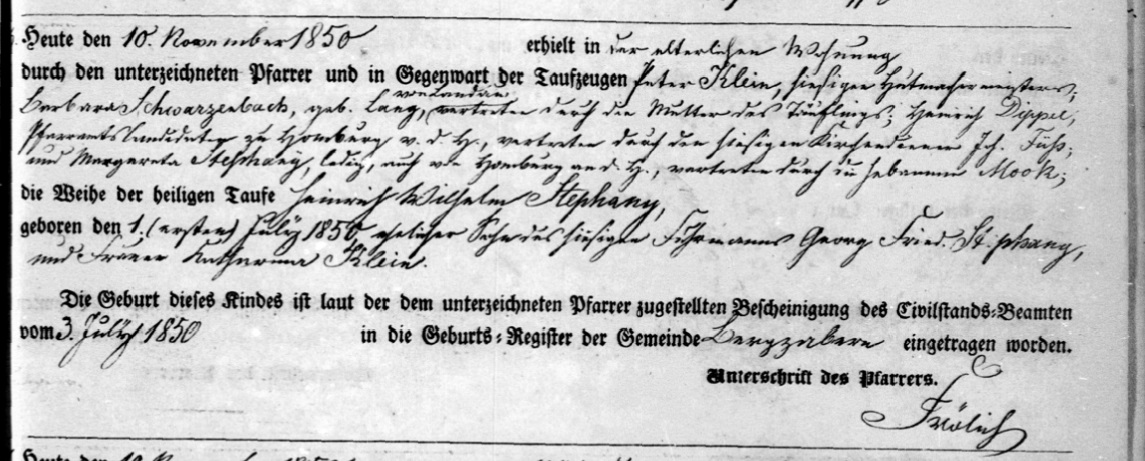 Heute den 10. November 1850 erhielt in der elterlichen Wohnung
durch den unterzeichneten Pfarrer und in Gegenwart der Taufzeugen Peter Klein, hiesigen Hutmachermeisters;
von Landau
Barbara Schwarzenbach, geb. Lang, vertreten durch die Mutter des Täuflings; Heinrich Dippel,
Pfarramtscandidat zu Homburg v. d. H., vertreten durch den hiesigen Kirchendiener Joh. Fuß;
und Margareta Stephany, ledig, auch von Homburg v. d. H., vertreten durch die Hebamme Mook;
die Weihe der heiligen Taufe Heinrich Wilhelm Stephany,
geboren den 1. (ersten) July 1850, ehelicher Sohn des hiesigen Fuhrmanns Georg Fried. Stephany,
und Katharina Klein.
Die Geburt dieses Kindes ist laut der dem unterzeichneten Pfarrer zugestellten Bescheinigung des Civilstands-Beamten
vom 3. July 1850 in die Geburts-Register der Gemeinde Bergzabern eingetragen worden.
Unterschrift des Pfarrers.
Frölich
Heute den